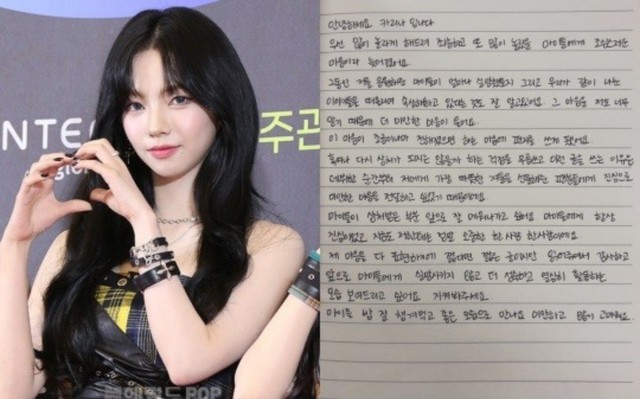 NTE
주관
POP
안녕하세요 카리나입니다
우선 많이 놀라게 해드려 죄송하고 또 많이 놀랐을 마이들에게 조심스러운
마음이라 늦어졌어요.
그동안 저를 응원해준 마이들이 얼마나 실망했을지 그리고 우리가 같이 나눈
이야기들을 떠올리며 속상해하고 있다는 것도 잘 알고있어요. 그 마음을 저도 너무
알기 때문에 더 미안한 마음이 들어요.
이 마음이 조금이나마 전해졌으면 하는 마음에 편지를 쓰게 됐어요.
혹여나 다시 상처가 되지는 않을까 하는 걱정을 무릅쓰고 이런 글을 쓰는 이유는
데뷔한 순간부터 저에게 가장 따뜻한 겨울을 선물해준 팬분들에게 진심으로
미안한 마음을 전달하고 싶었기 때문이에요.
마이들이 상처받은 부분 앞으로 잘 메워나가고 싶어요 마이들에게 항상
진심이었고 지금도 저한테는 정말 소중한 한 사람 한사람이에요.
제 마음을 다 표현하기에 짧다면 짧은 글이지만 읽어주셔서 감사하고
앞으로 마이들에게 실망시키지 않고 더 성숙하고 열심히 활동하는
모습 보여드리고 싶어요. 지켜봐주세요.
마이들 밥 잘 챙겨먹고 좋은 모습으로 만나요 미안하고 많이 고마워요.